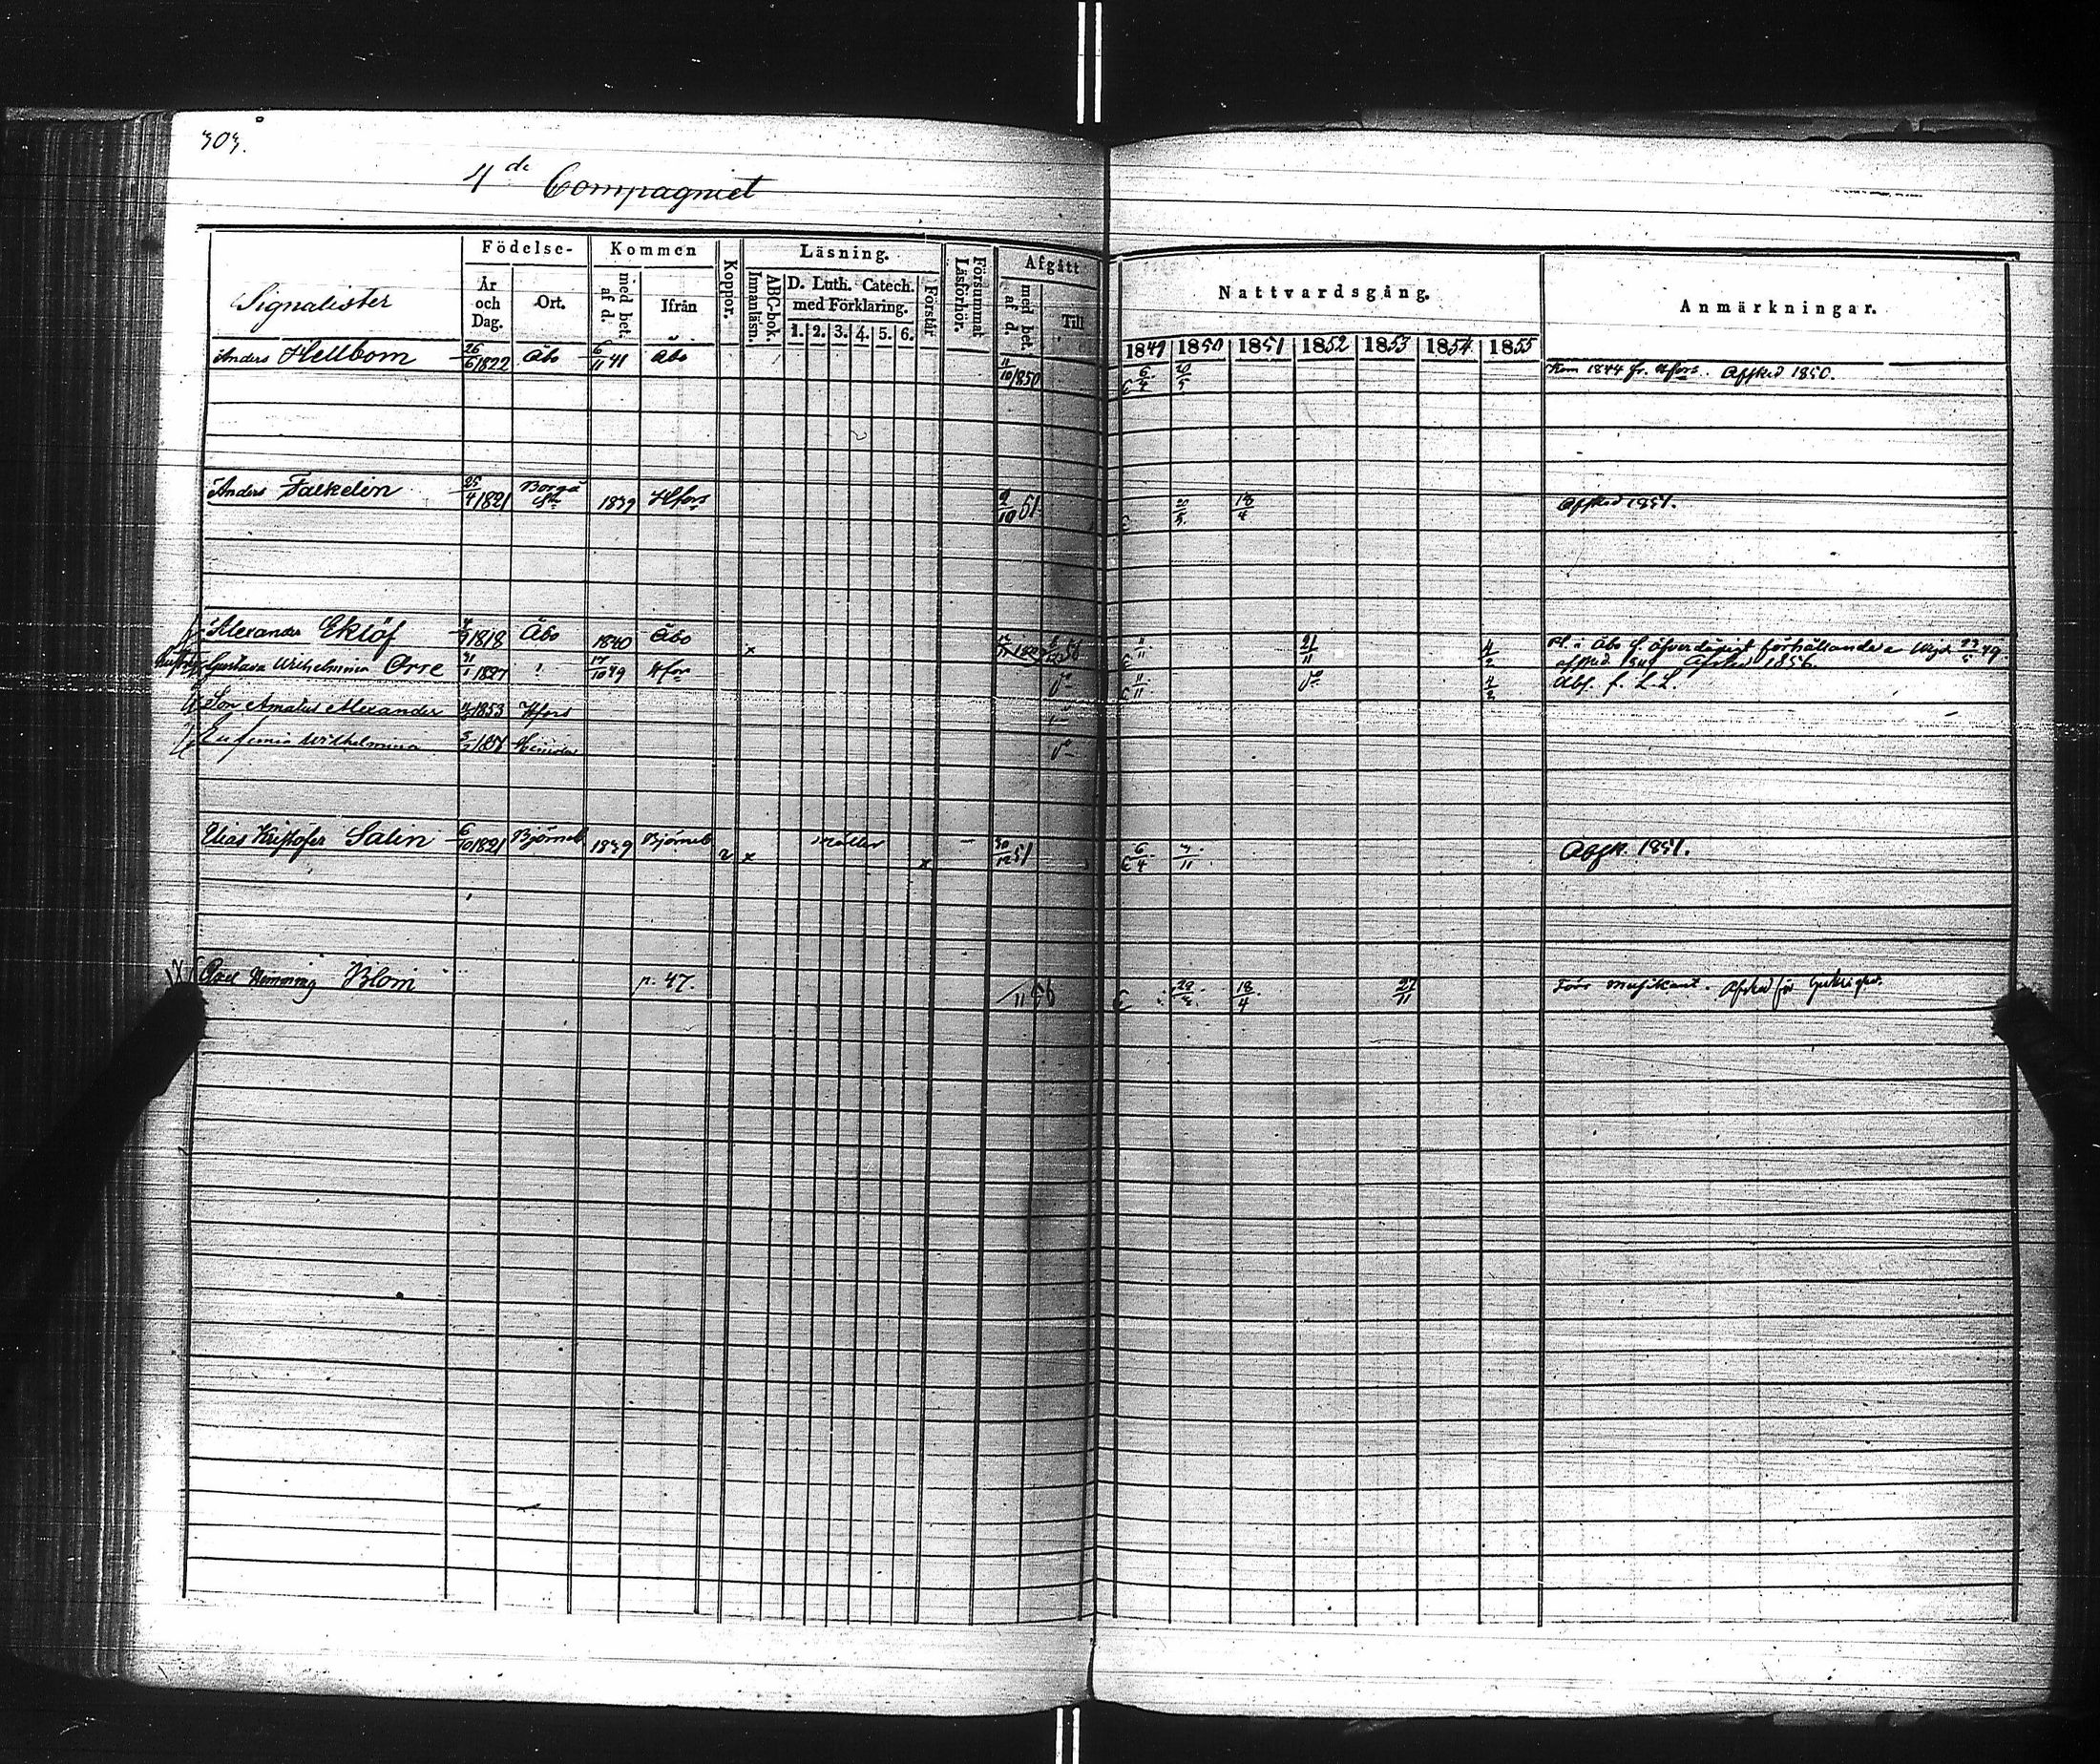 303.
4 de Compagniet
Signalister Födelse- År och Dag. Ort. Kommen med bet. af d. Ifrån Koppor. Läsning. ABC-bok. Innanläsn. D. Luth. Catech. med Förklaring. 1. 2. 3. 4. 5. 6. Förstår Försummat Läsförhör. Afgått med bet. af d. Till Nattvardsgång. 1849 1850 1851 1852 1853 1854 1855 Anmärkningar.
Anders Hellbom 26/6 1822 Åbo 6/11 41 Åbo 11/10 1850 Kom 1844 fr. Hfors. Afsked 1850.
Anders Falkelin 25/4 1821 Borgå 1839 Hfors 9/10 51 18/4 Afsked 1851.
Alexander Eklöf 1818 Åbo 1840 Åbo x 11/11 21/11 4/2 i Åbo f. öfverdådigt förhållande
Gustava Wilhelmina Orre 31/1 1827 17/10 49 Hfors do 11/11 do 4/2 afsked 1849 Afsked 1856.
Abs. f. L.L.
Son Amatus Alexander 1853 Hfors
Eufemia Wilhelmina Heinola do
Elias Kristofer Salin 6/10 1821 Björneb 1839 Björneb x x 30/12 51 6/4 3/11 Afsk. 1851.
Axel Henning Blom p. 47. /11 56 18/4 27/11 Förr musikant. Afsked för